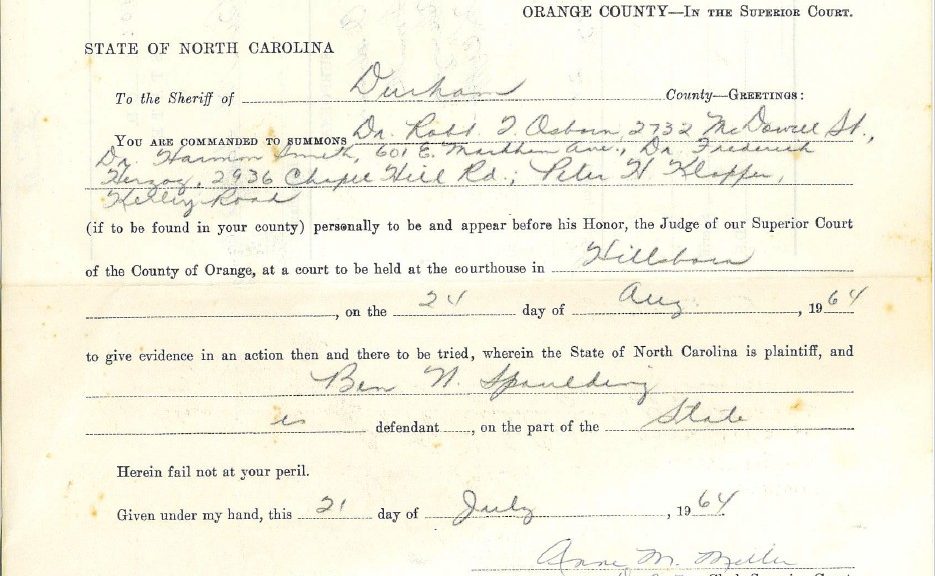 ORANGE COUNTY—IN THE SUPERIOR COURT.
STATE OF NORTH CAROLINA
To the Sheriff of Durham County—GREETINGS:
YOU ARE COMMANDED TO SUMMONS Dr. Robt. T Osborn, 2732 McDowell St.,
Dr. Harmon Smith, 601 E. Markham Ave., Dr. Frederick
Herzog, 2936 Chapel Hill Rd.; Peter H Klopfer,
Kelley Road
(if to be found in your county) personally to be and appear before his Honor, the Judge of our Superior Court
of the County of Orange, at a court to be held at the courthouse in Hillsboro
, on the 24 day of Aug , 1964
to give evidence in an action then and there to be tried, wherein the State of North Carolina is plaintiff, and
Ben W. Spaulding
is defendant , on the part of the State
Herein fail not at your peril.
Given under my hand, this 21 day of July , 1964
Anne M. Miller